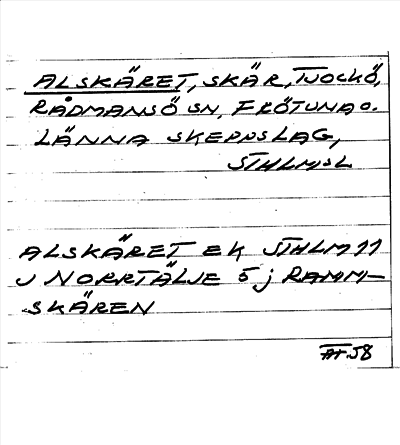 ALSKÄRET, SKÄR, TJOCKÖ,
RÅDMANSÖ SN, FRÖTUNA O.
LÄNNA SKEPPSLAG,
STHLMSL
ALSKÄRET EK STHLM 11
J NORRTÄLJE 5 j RAMM-
SKÄREN
58